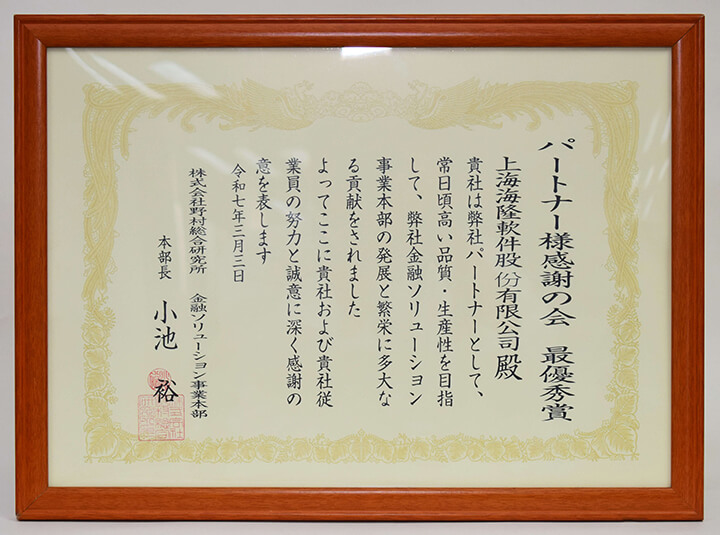 パートナー様感謝の会　最優秀賞
上海海隆軟件股份有限公司 殿
貴社は弊社パートナーとして、
常日頃高い品質・生産性を目指
して、弊社金融ソリューション
事業本部の発展と繁栄に多大な
る貢献をされました
よってここに貴社および貴社従
業員の努力と誠意に深く感謝の
意を表します
令和七年三月三日
株式会社野村総合研究所　金融ソリューション事業本部
本部長　小池　裕